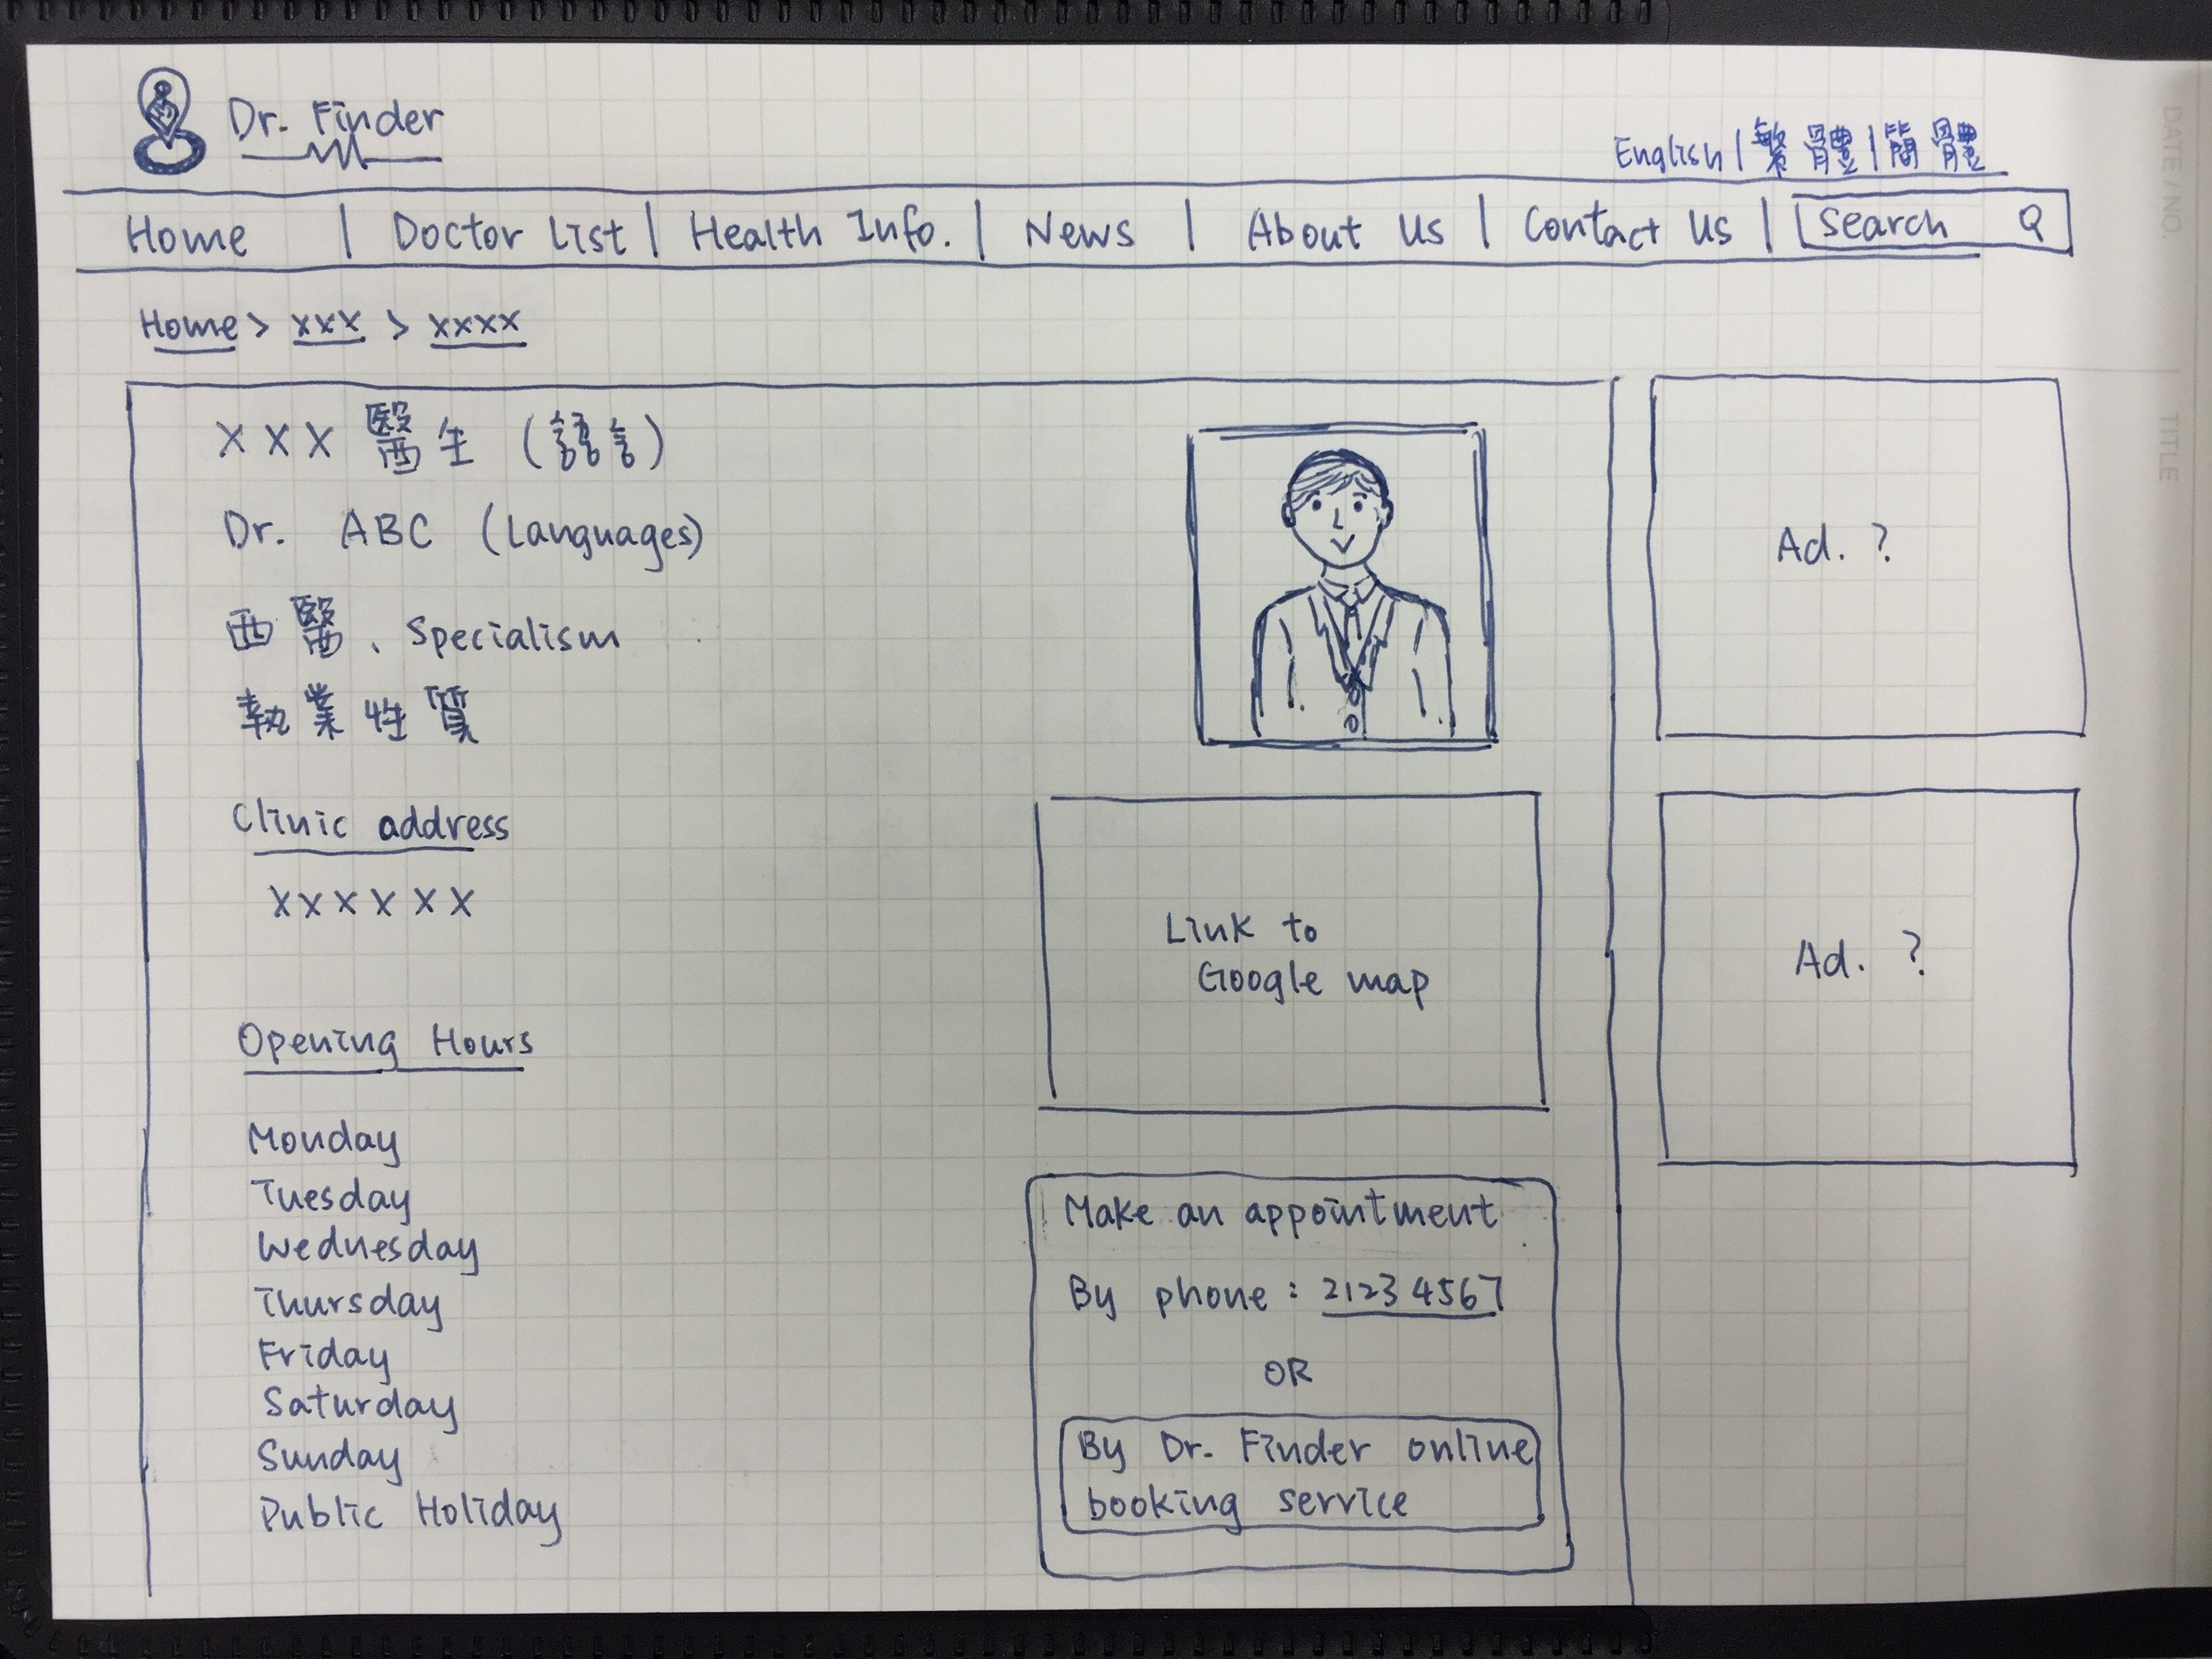 Dr. Finder
English | 繁體 | 簡體
Home | Doctor List | Health Info. | News | About Us | Contact Us | Search
Home > xxx > xxxx
XXX 醫生 (語言)
Dr. ABC (Languages)
西醫、Specialism
執業性質
Clinic address
XXXXXX
Opening Hours
Monday
Tuesday
Wednesday
Thursday
Friday
Saturday
Sunday
Public Holiday
Link to
Google map
Make an appointment
By phone : 2123 4567
OR
By Dr. Finder online
booking service
Ad. ?
Ad. ?
DATE / NO.
TITLE